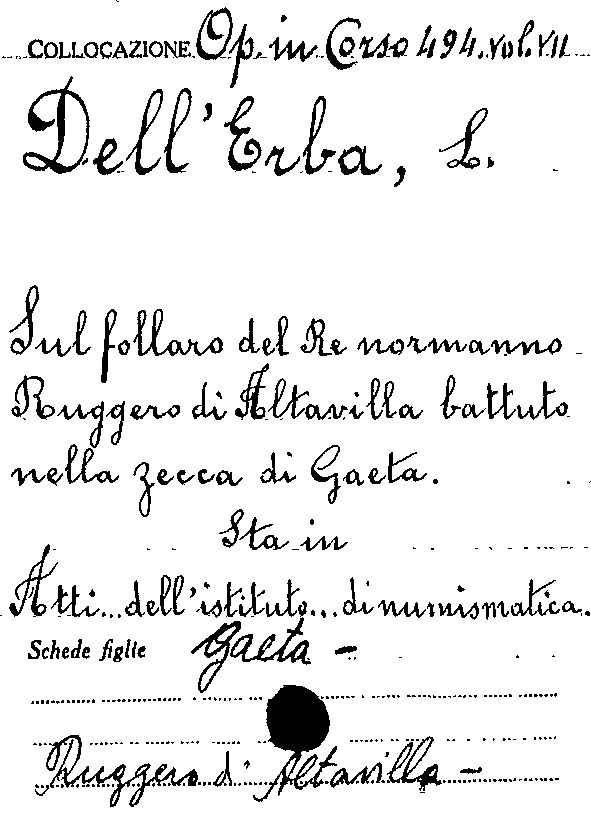 COLLOCAZIONE Op. in Corso 494. vol. VII
Dell'Erba, L.
Sul follaro del Re normanno
Ruggero di Altavilla battuto
nella zecca di Gaeta.
Sta in
Atti... dell'istituto... di numismatica.
Schede figlie Gaeta -
Ruggero d' Altavilla -